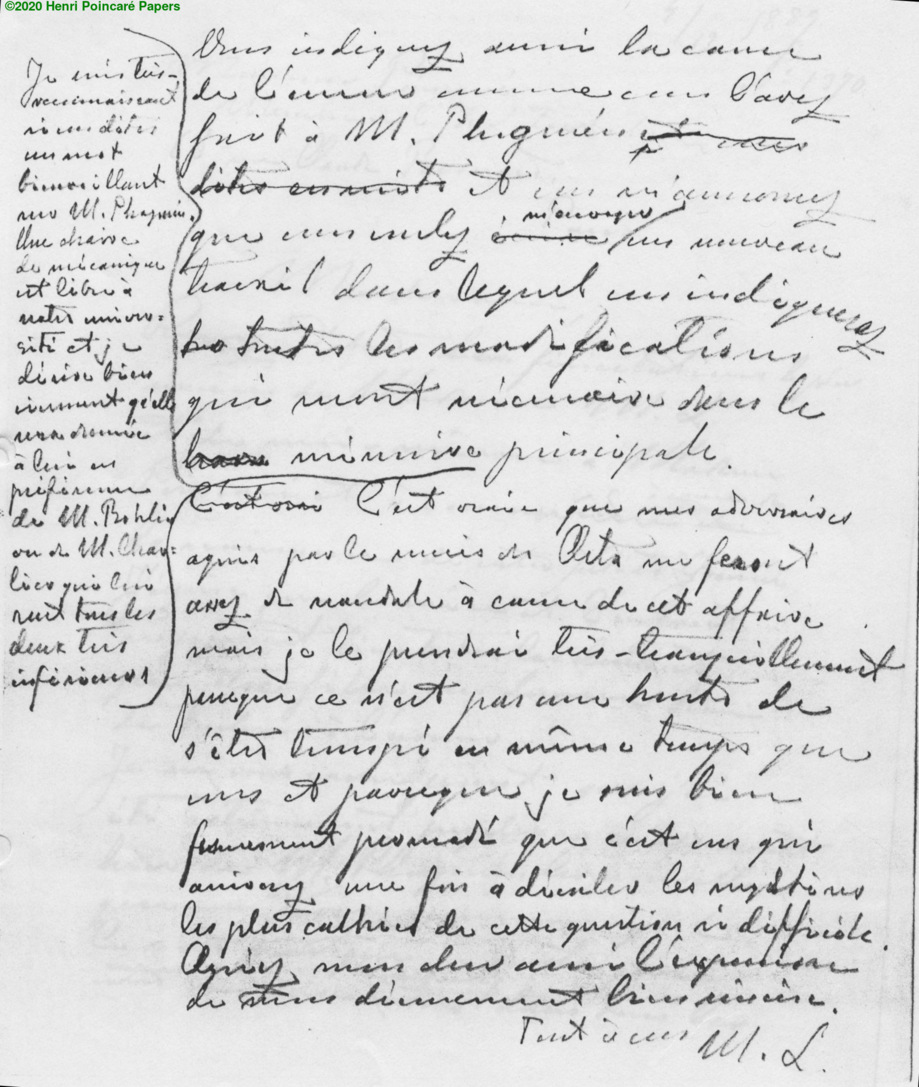 ©2020 Henri Poincaré Papers
Vous indiquez aussi la cause
de l'erreur comme vous l'avez
fait à M. Phragmén et vous
dites ensuite Et vous m'annoncez
que vous voulez écrire m'envoyer un nouveau
travail dans lequel vous indiquerez
toutes les modifications
qui sont nécessaire dans le
mémoire principale.
C'est vrai C'est vraie que mes adversaires
après par le mois de Acta me feront
assez de scandale à cause de cet affaire
mais je le prendrai très-tranquillement
parceque ce n'est pas une honte de
s'être trompé en même temps que
vous et parceque je suis bien
fermement persuadé que c'est vous qui
arriverez une fois à déceler les mystères
les plus cachées de cette question si difficile.
Agréez mon cher ami l'expression
de mon dévouement bien sincère.
Tout à vous M. L.
Je suis très-
reconnaissant
si vous dites
un mot
bienveillant
sur M. Phragmén.
Une chaire
de mécanique
est libre à
notre univer-
sité et je
désire bien
vivement qu'elle
sera donnée
à lui en
préférence
de M. Bohlin
ou de M. Char-
lier qui lui
sont tous les
deux très
inférieurs